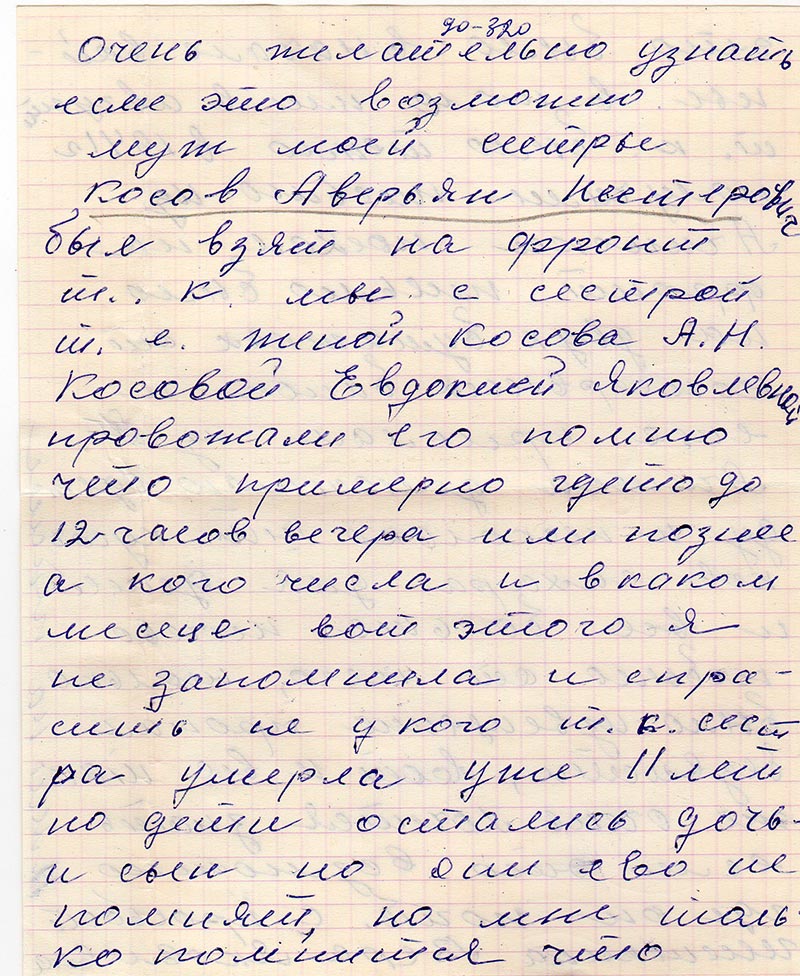 до-320
Очень желательно узнать
если это возможно
муж моей сестры
Косов Аверьян Нестерович
был взят на фронт
т. к. мы с сестрой
т. е. женой Косова А.Н.
Косовой Евдокией Яковлевной
провожали его помню
что примерно гдето до
12 часов вечера или позднее
а кого числа и в каком
месеце вот этого я
не запомнила и спра-
сить не у кого т. к. сест
ра умерла уже 11 лет
но дети остались дочь-
и сын но они ево не
помнят, но мне толь-
ко помнится что